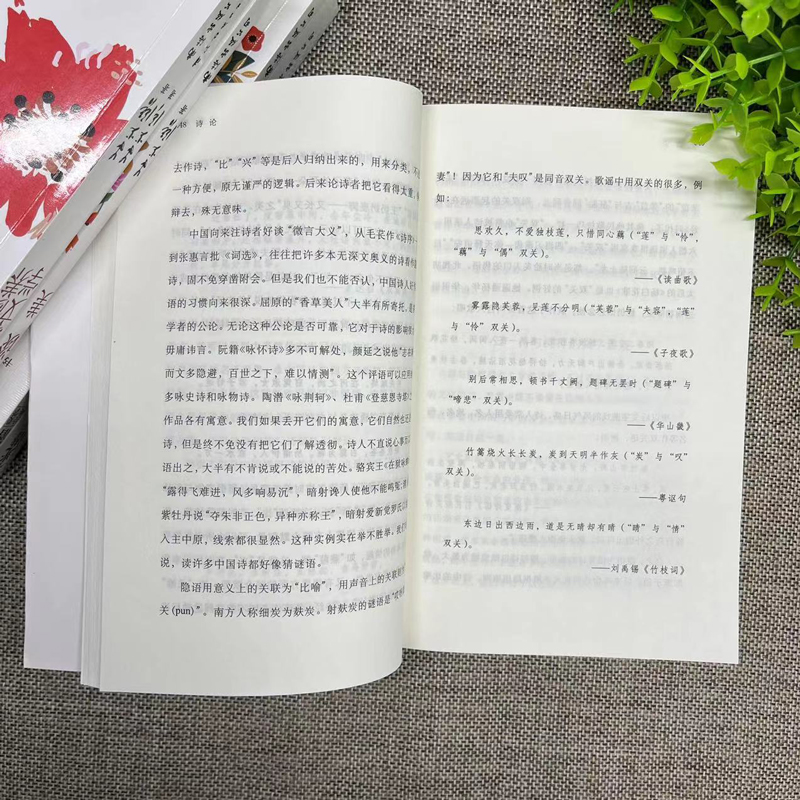 48 诗论
去作诗，“比”“兴”等是后人归纳出来的，用来分类，不
一种方便，原无谨严的逻辑。后来论诗者把它看得太重，
辩去，殊无意味。
中国向来注诗者好谈“微言大义”，从毛苌作《诗序》
到张惠言批《词选》，往往把许多本无深文奥义的诗看作
诗，固不免穿凿附会。但是我们也不能否认，中国诗人好
语的习惯向来很深。屈原的“香草美人”大半有所寄托，是
学者的公论。无论这种公论是否可靠，它对于诗的影响
毋庸讳言。阮籍《咏怀诗》多不可解处，颜延之说他“志在
而文多隐避，百世之下，难以情测”。这个评语可以应用
多咏史诗和咏物诗。陶潜《咏荆轲》、杜甫《登慈恩寺塔》
作品各有寓意。我们如果丢开它们的寓意，它们自然也还
诗，但是终不免没有把它们了解透彻。诗人不直说心事
语出之，大半有不肯说或不能说的苦处。骆宾王《在狱咏
“露得飞难进，风多响易沉”，暗射谗人使他不能鸣冤；
紫牡丹说“夺朱非正色，异种亦称王”，暗射爱新觉罗氏
入主中原，线索都很显然。这种实例实在举不胜举。我们
说，读许多中国诗都好像猜谜语。
隐语用意义上的关联为“比喻”，用声音上的关联
关(pun)”。南方人称细炭为麸炭。射麸炭的谜语是“哎哟
妻”！因为它和“夫叹”是同音双关。歌谣中用双关的很多，例
如：
思欢久，不爱独枝莲，只惜同心藕（“莲”与“怜”，
“藕”与“偶”双关）。
——《读曲歌》
雾露隐芙蓉，见莲不分明（“芙蓉”与“夫容”，“莲”
与“怜”双关）。
——《子夜歌》
别后常相思，顿书千丈阙，题碑无罢时（“题碑”与
“啼悲”双关）。
——《华山畿》
竹篙烧火长长炭，炭到天明半作灰（“炭”与“叹”
双关）。
——粤讴句
东边日出西边雨，道是无晴却有晴（“晴”与“情”
双关）。
——刘禹锡《竹枝词》